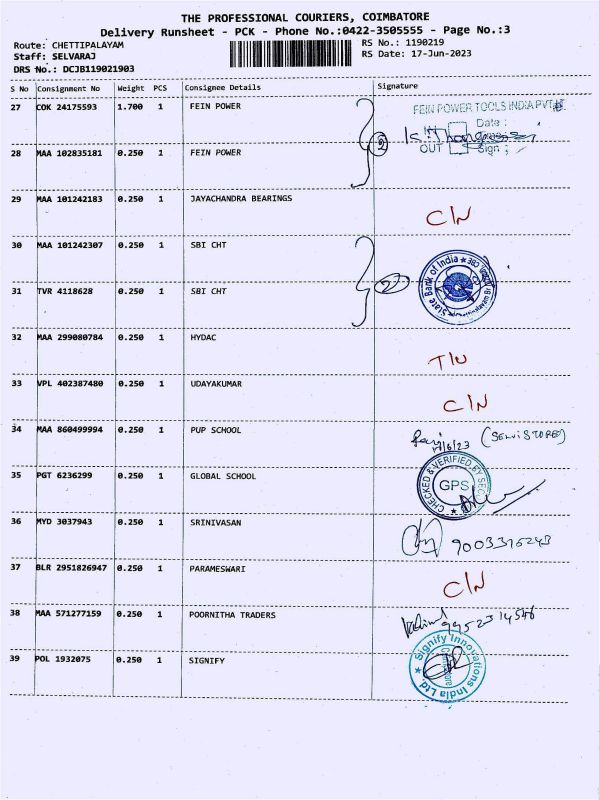 THE PROFESSIONAL COURIERS, COIMBATORE
Delivery Runsheet - PCK - Phone No.:0422-3505555 - Page No.:3
Route: CHETTIPALAYAM RS No.: 1190219
Staff: SELVARAJ RS Date: 17-Jun-2023
DRS No.: DCJB119021903
S No Consignment No Weight PCS Consignee Details Signature
27 COK 24175593 1.700 1 FEIN POWER
FEIN POWER TOOLS INDIA PVT
Date :
OUT Sign :
2
28 MAA 102835181 0.250 1 FEIN POWER
29 MAA 101242183 0.250 1 JAYACHANDRA BEARINGS
C/N
30 MAA 101242307 0.250 1 SBI CHT
State Bank of India
2
31 TVR 4118628 0.250 1 SBI CHT
32 MAA 299080784 0.250 1 HYDAC
T/N
33 VPL 402387480 0.250 1 UDAYAKUMAR
C/N
34 MAA 860499994 0.250 1 PUP SCHOOL
17/6/23
35 PGT 6236299 0.250 1 GLOBAL SCHOOL
CHECKED & VERIFIED BY
GPS
36 MYD 3037943 0.250 1 SRINIVASAN
37 BLR 2951826947 0.250 1 PARAMESWARI
C/N
38 MAA 571277159 0.250 1 POORNITHA TRADERS
39 POL 1932075 0.250 1 SIGNIFY
Signify Innovations India Ltd.
Coimbatore